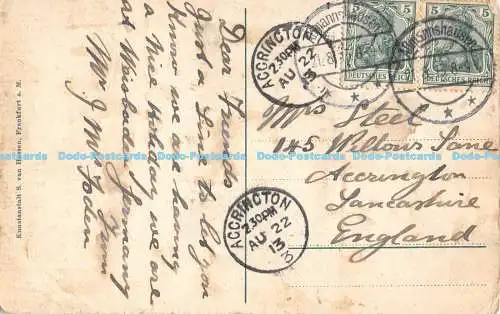 Dear Friends
Just a Line to let you
Know we are having
a nice Holiday we are
at Wiesbaden Germany
From
Mr J Mrs Foden
Kunstanstalt S. van Hoosen, Frankfurt a. M.
ACCRINGTON
2.30PM
AU 22
13
5
5
DEUTSCHES REICH
5
5
DEUTSCHES REICH
Mrs Steel
145 Willows Lane
Accrington
Lancashire
England
ACCRINGTON
2.30PM
AU 22
13
Dodo-Postcards Dodo-Postcards Dodo-Postcards Dodo-Postcards Dodo-Postcards